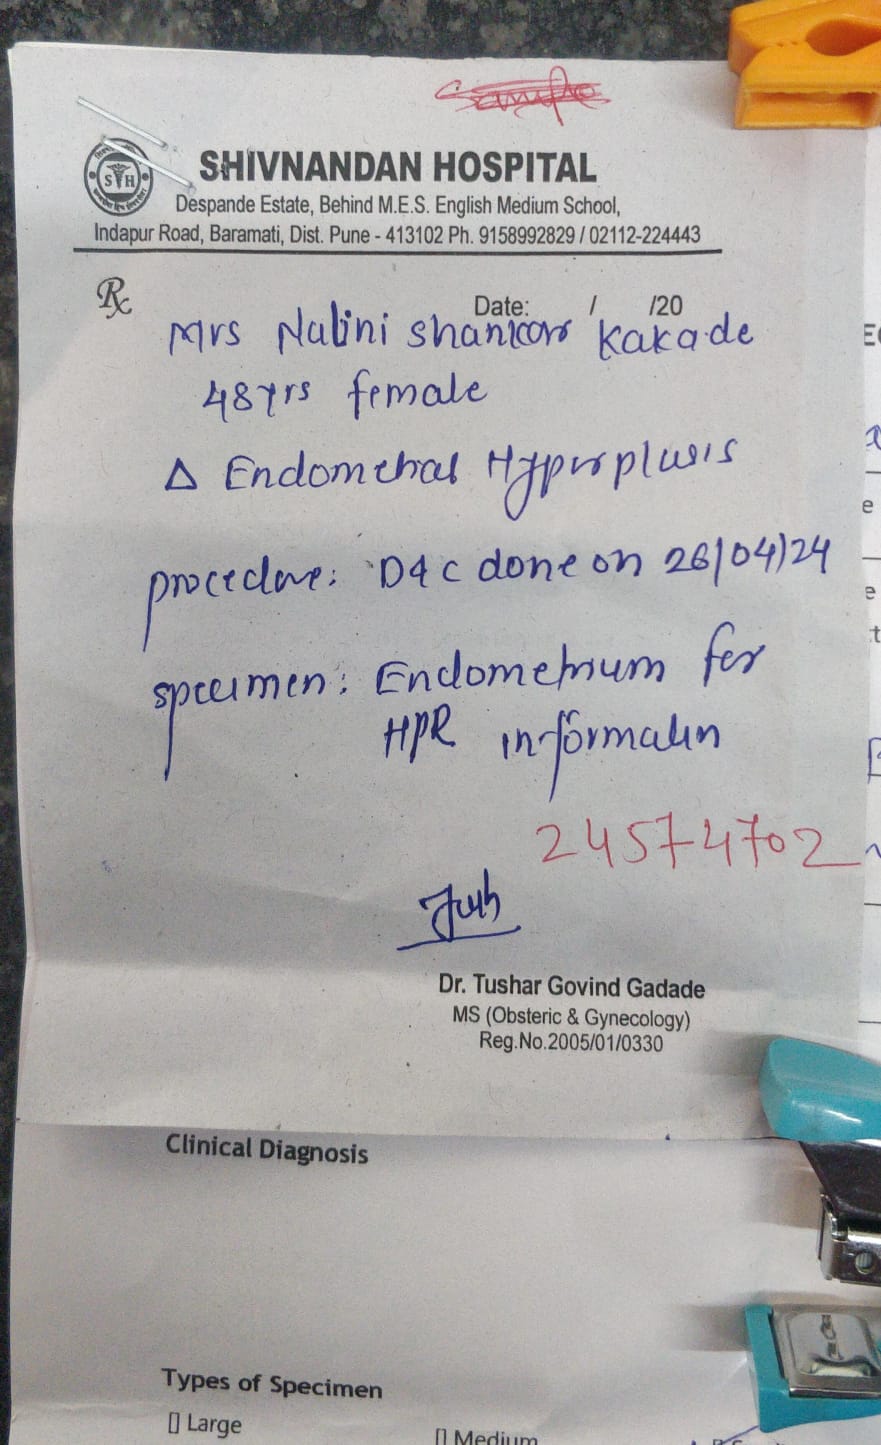 Sample
STH
SHIVNANDAN HOSPITAL
Despande Estate, Behind M.E.S. English Medium School,
Indapur Road, Baramati, Dist. Pune - 413102 Ph. 9158992829 / 02112-224443
Rx
Date: / /20
Mrs Nalini shankar Kakade
48yrs female
Δ Endometrial Hyperplasis
procedure: D&C done on 26/04/24
specimen: Endometrium for
HPR in formalin
24574702
Dr. Tushar Govind Gadade
MS (Obsteric & Gynecology)
Reg.No.2005/01/0330
Clinical Diagnosis
Types of Specimen
[] Large
[] Medium